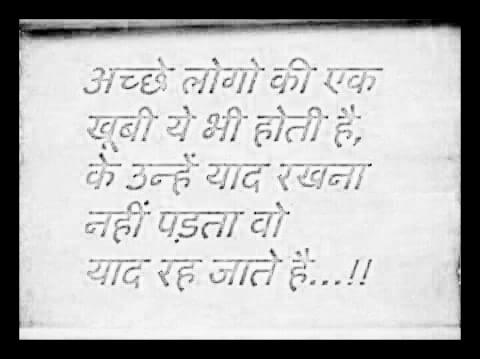 अच्छे लोगो की एक
खूबी ये भी होती है,
के उन्हें याद रखना
नहीं पड़ता वो
याद रह जाते है...!!